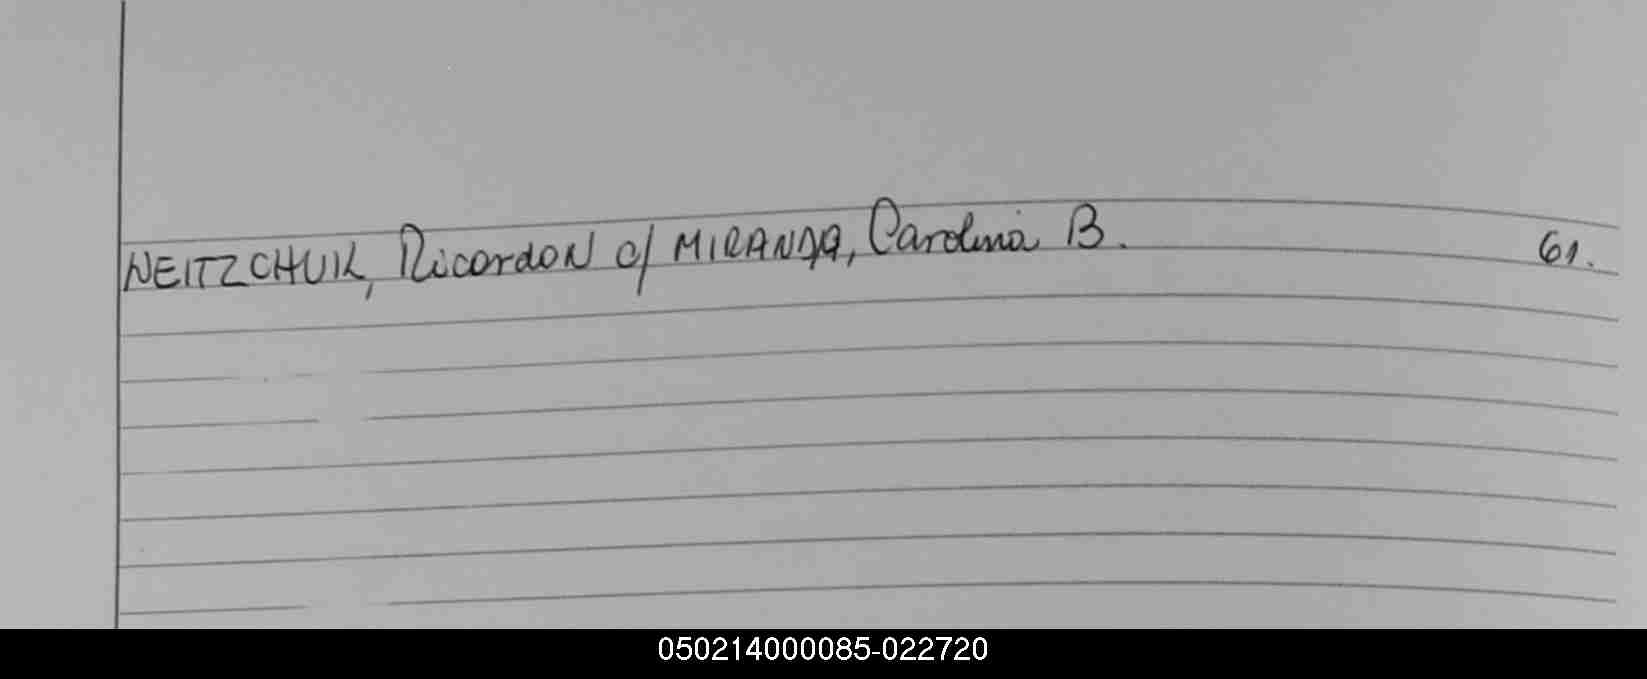 NEITZCHUK, Ricardon c/ MIRANDA, Carolina B. 61.
050214000085-022720